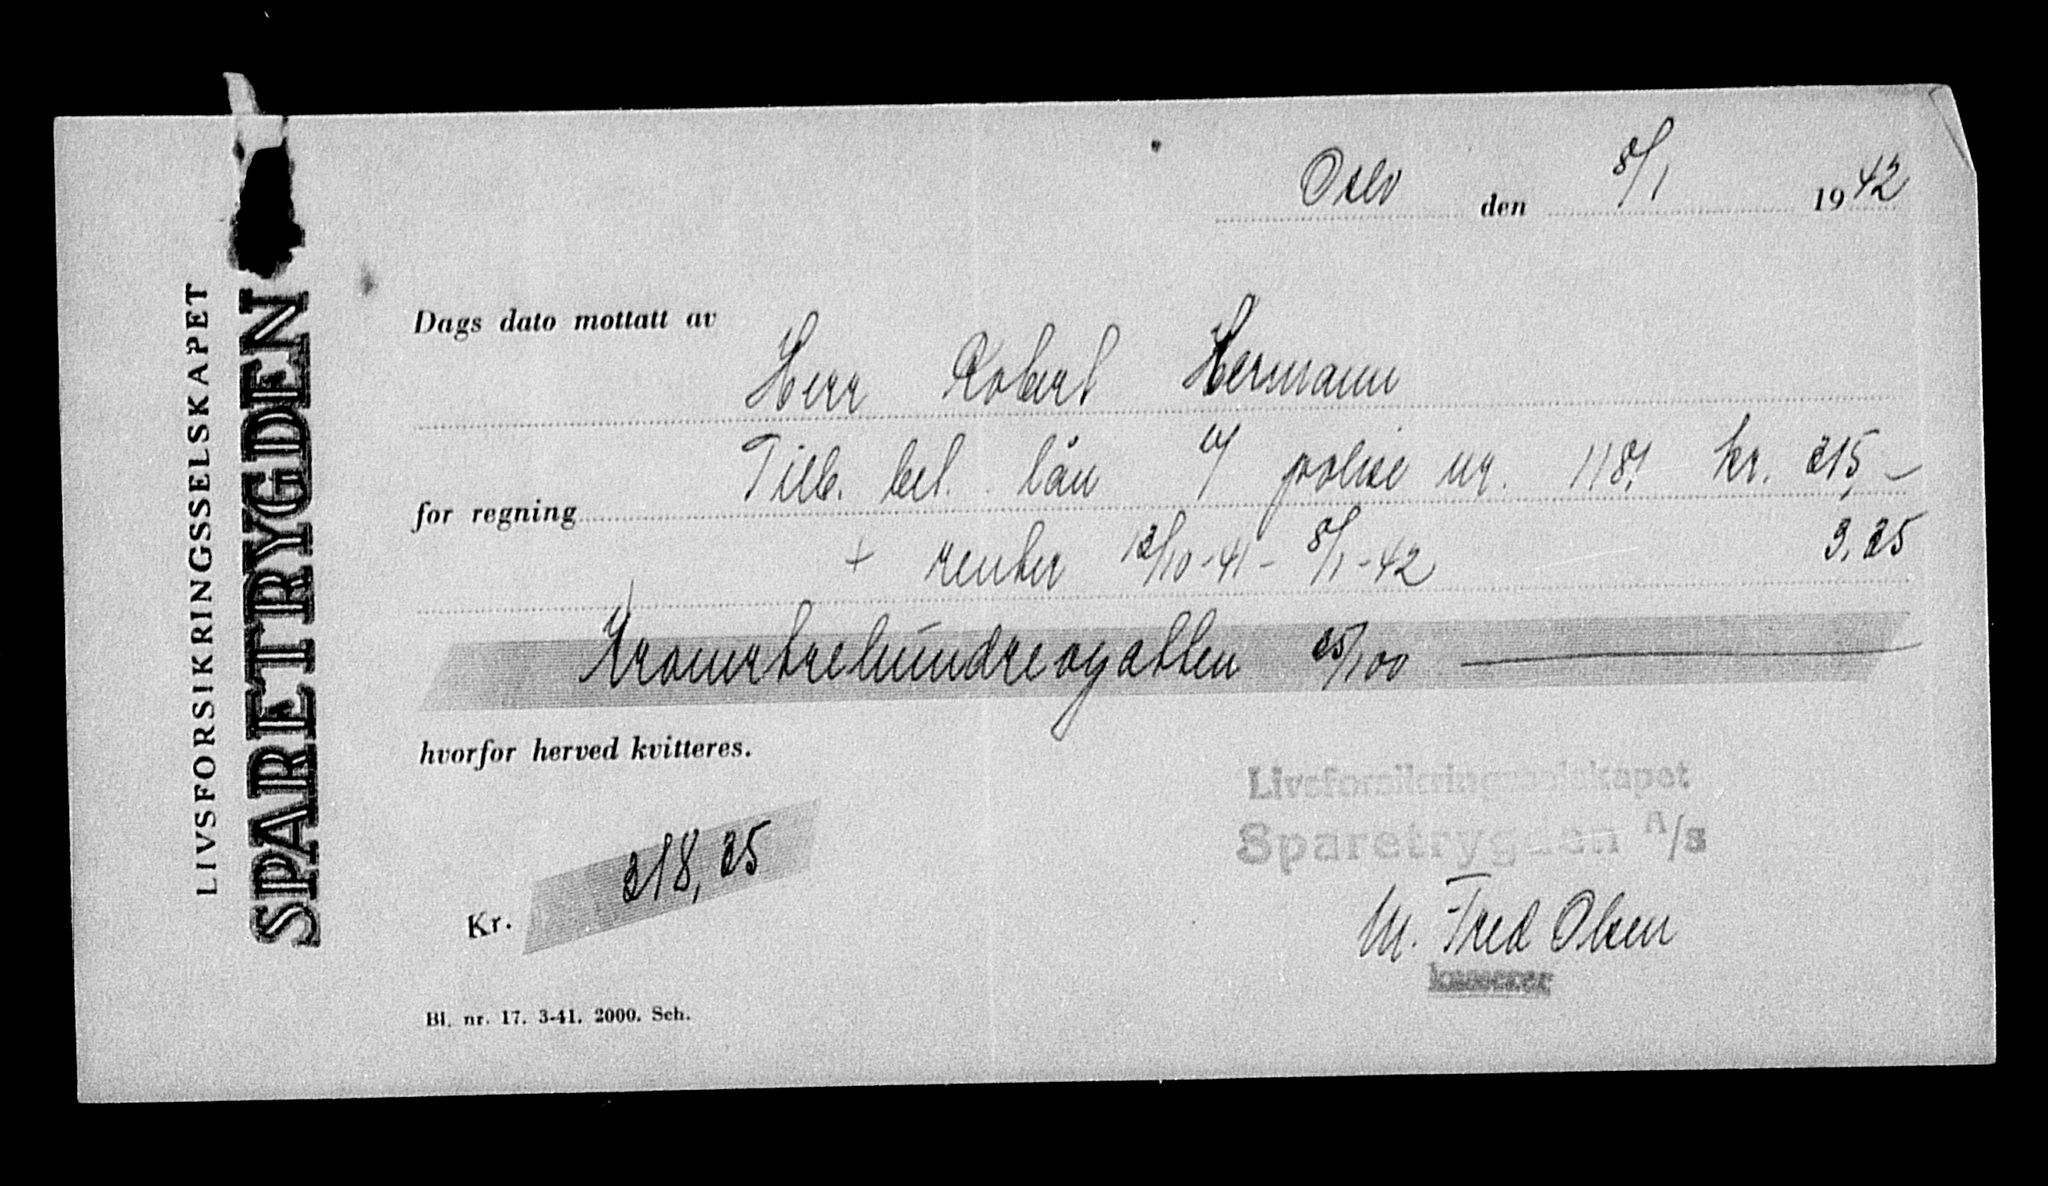 LIVSFORSIKRINGSSELSKAPET
SPARETRYGDEN
Oslo den 8/1 1942
Dags dato mottatt av
Herr Robert Hermann
for regning Tilb. bet. lån 4/ polise nr. 1181 kr. 315,-
+ renter 12/10-41 - 8/1-42 3,25
Kronertrehundreogatten 25/100
hvorfor herved kvitteres.
Livsforsikringsselskapet
Sparetrygden A/s
Kr. 318,25
M. Fred Olsen
kasserer
Bl. nr. 17. 3-41. 2000. Sch.